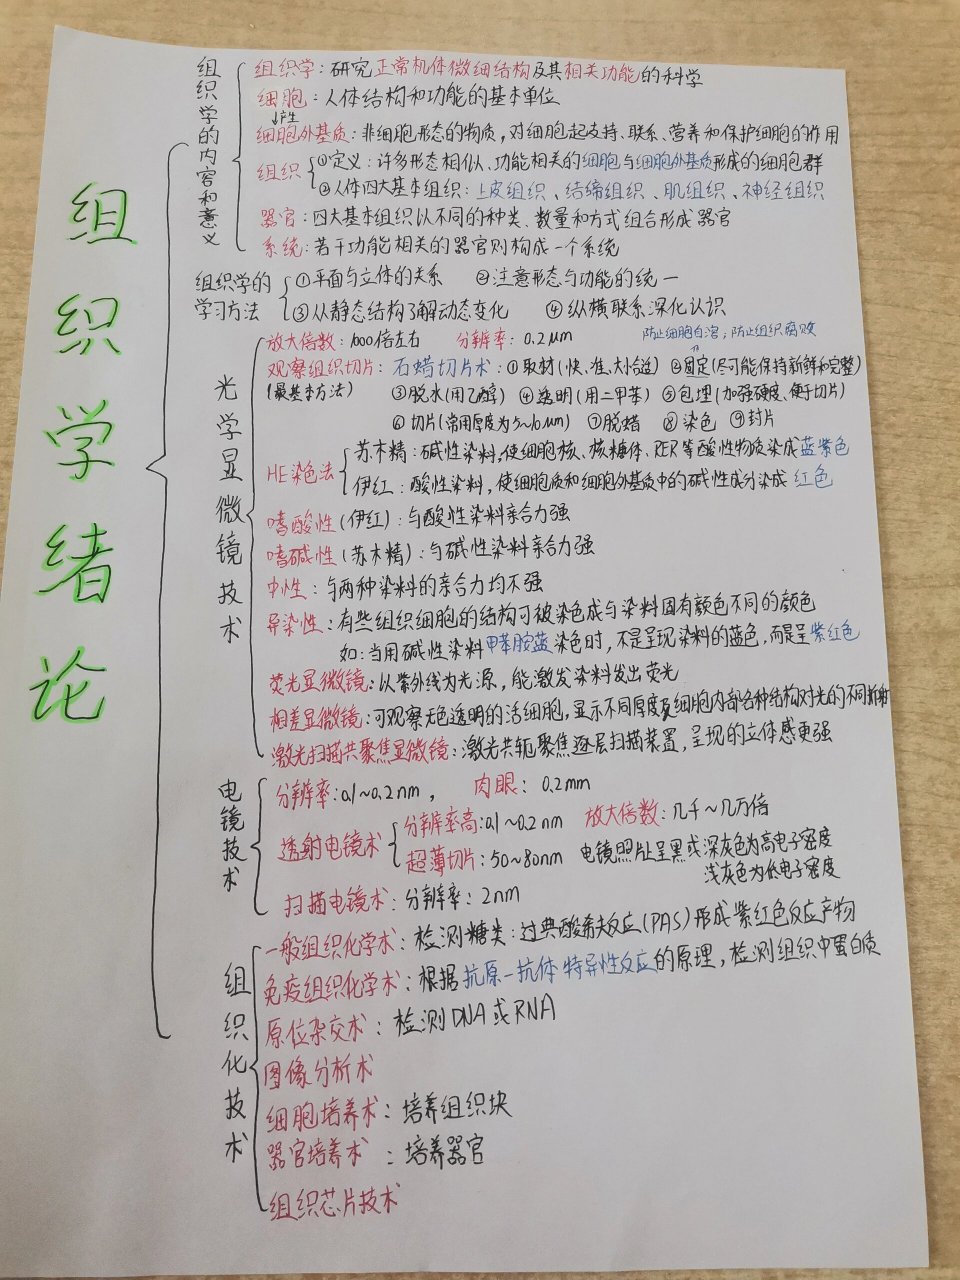 组织学绪论
组织学的内容和意义
组织学：研究正常机体微细结构及其相关功能的科学
细胞：人体结构和功能的基本单位
↓产生
细胞外基质：非细胞形态的物质，对细胞起支持、联系、营养和保护细胞的作用
组织 ①定义：许多形态相似、功能相关的细胞与细胞外基质形成的细胞群
②人体四大基本组织：上皮组织、结缔组织、肌组织、神经组织
器官：四大基本组织以不同的种类、数量和方式组合形成器官
系统：若干功能相关的器官则构成一个系统
组织学的学习方法
①平面与立体的关系 ②注意形态与功能的统一
③从静态结构了解动态变化 ④纵横联系深化认识
光学显微镜技术
放大倍数：1000倍左右 分辨率：0.2μm 防止细胞自溶；防止组织腐败
观察组织切片：石蜡切片术：①取材(快、准、大小合适) ②固定(尽可能保持新鲜和完整)
(最基本方法) ③脱水(用乙醇) ④透明(用二甲苯) ⑤包埋(加强硬度、便于切片)
⑥切片(常用厚度为5~10μm) ⑦脱蜡 ⑧染色 ⑨封片
HE染色法 苏木精：碱性染料，使细胞核、核糖体、RER等酸性物质染成蓝紫色
伊红：酸性染料，使细胞质和细胞外基质中的碱性成分染成红色
嗜酸性(伊红)：与酸性染料亲合力强
嗜碱性(苏木精)：与碱性染料亲合力强
中性：与两种染料的亲合力均不强
异染性：有些组织细胞的结构可被染色成与染料固有颜色不同的颜色
如：当用碱性染料甲苯胺蓝染色时，不是呈现染料的蓝色，而是呈紫红色
荧光显微镜：以紫外线为光源，能激发染料发出荧光
相差显微镜：可观察无色透明的活细胞，显示不同厚度及细胞内部各种结构对光的不同折射
激光扫描共聚焦显微镜：激光共轭聚焦逐层扫描装置，呈现的立体感更强
电镜技术
分辨率：0.1~0.2nm， 肉眼：0.2mm
透射电镜术 分辨率高：0.1~0.2nm 放大倍数：几千~几万倍
超薄切片：50~80nm 电镜照片上呈黑或深灰色为高电子密度
浅灰色为低电子密度
扫描电镜术：分辨率：2nm
组织化技术
一般组织化学术：检测糖类：过碘酸希夫反应(PAS)形成紫红色反应产物
免疫组织化学术：根据抗原-抗体特异性反应的原理，检测组织中蛋白质
原位杂交术：检测DNA或RNA
图像分析术
细胞培养术：培养组织块
器官培养术：培养器官
组织芯片技术